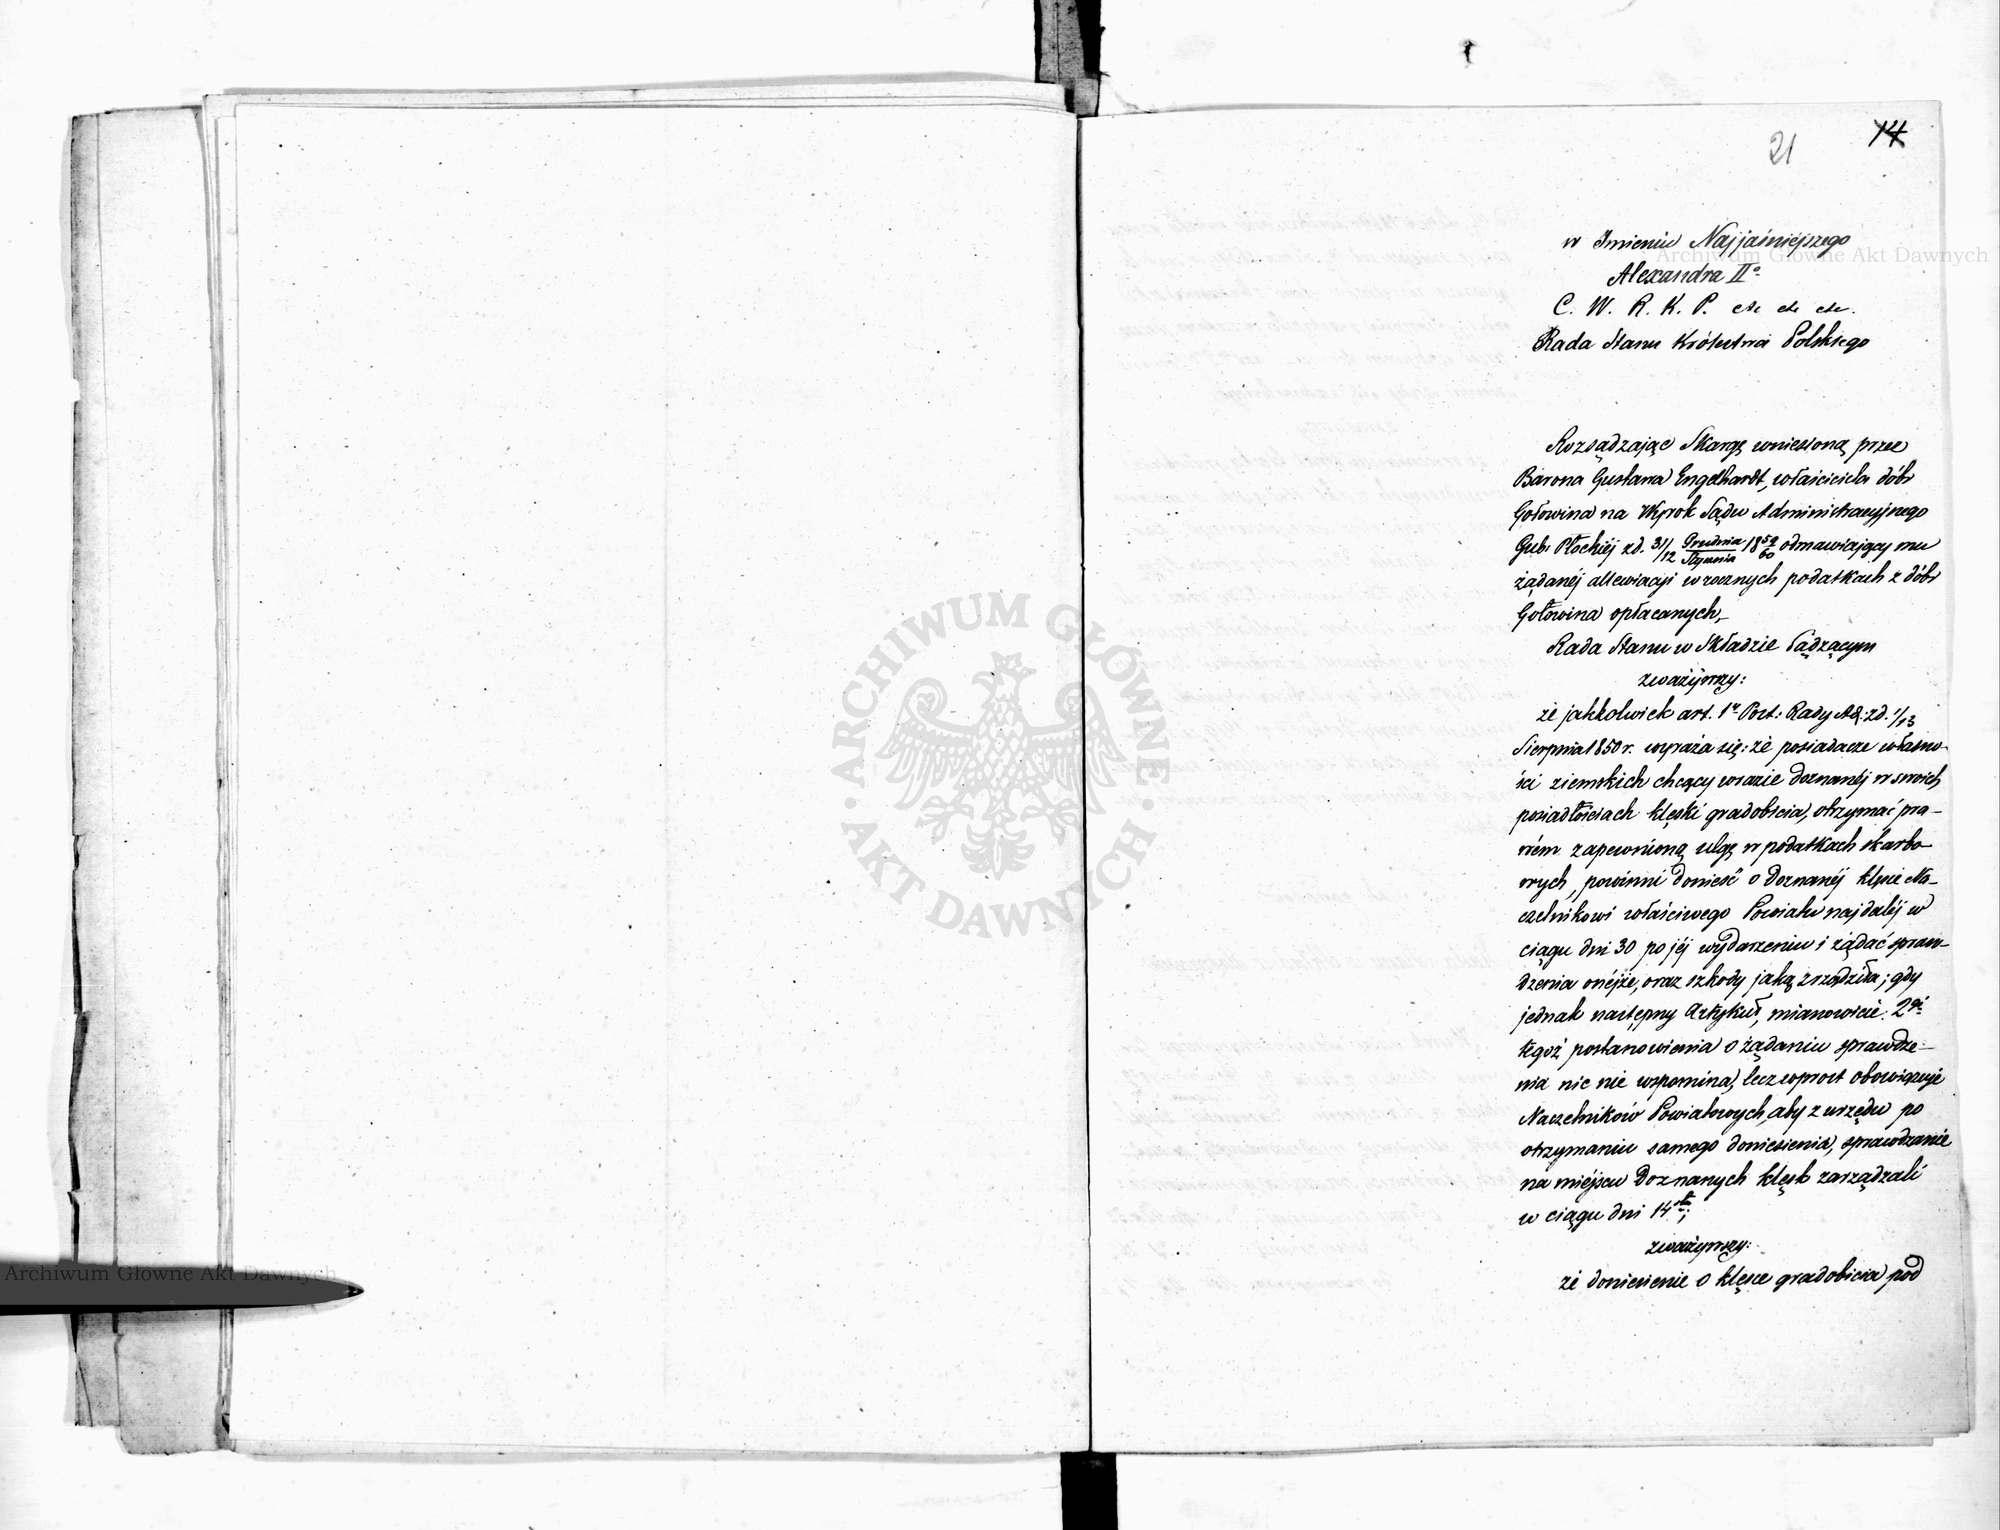 21 14
w Imieniu Najjaśniejszego
Alexandra IIo
C. W. R. K. P. etc etc etc.
Rada Stanu Królestwa Polskiego
Rozsądzając Skargę wniesioną przez
Barona Gustawa Engelhardt, właściciela dóbr
Gołowina na Wyrok Sądu Administracyjnego
Gub. Płockiéj z d. 31/12 Grudnia/Stycznia 1859/60 odmawiający mu
żądanéj allewiacyi w rocznych podatkach z dóbr
Gołowina opłacanych,
Rada Stanu w Składzie Sądzącym
zważywszy:
że jakkolwiek art. 1y Post: Rady Ad: z d. 1/13
Sierpnia 1850 r. wyraża się: że posiadacze własno-
ści ziemskich chcący w razie doznanéj w swoich
posiadłościach klęski gradobicia, otrzymać pra-
wem zapewnioną ulgę w podatkach skarbo-
wych, powinni donieść o doznanéj klęsce Na-
czelnikowi właściwego Powiatu najdaléj w
ciągu dni 30 po jéj wydarzeniu i żądać spraw-
dzenia onéjże, oraz szkody jaką zrządziła; gdy
jednak następny Artykuł, mianowicie: 2gi
tegoż postanowienia o żądaniu sprawdze-
nia nic nie wspomina, lecz wprost obowiązuje
Naczelników Powiatowych, aby z urzędu po
otrzymaniu samego doniesienia, sprawdzanie
na miéjscu doznanych klęsk zarządzali
w ciągu dni 14stu;
zważywszy:
że doniesienie o klęsce gradobicia pod
Archiwum Głowne Akt Dawnych
Archiwum Głowne Akt Dawnych
ARCHIWUM GŁÓWNE AKT DAWNYCH